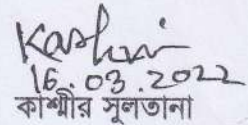 Kashmir
16.03.2022
কাশ্মীর সুলতানা